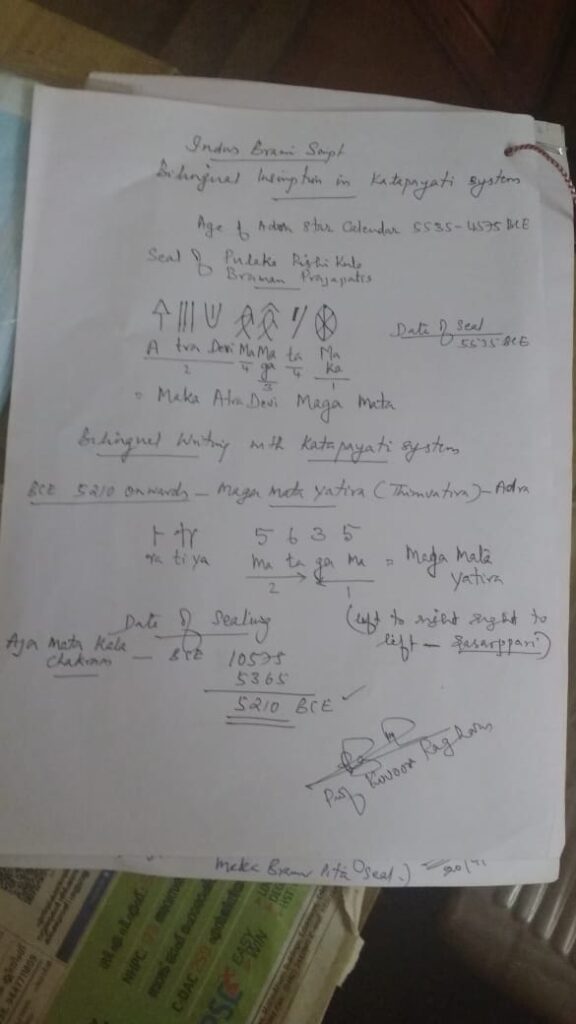 Indus Brami Script
Bilingual Insription in Katapayati system
Age of Adra Star Calendar 5535-4575 BCE
Seal of Pulaha Rishi Kula
Braman Prajapatis
Date of Seal
5575 BCE
A tra Devi Ma Ma ta Ma
2 4 ga 4 ka
3 1
= Maka Atra Devi Maga Mata
Bilingual Writing with Katapayati system
BCE 5210 onwards - Maga Mata yatira (Thiruvatira) - Adra
5 6 3 5
ra ti ya ma ta ga ma = Maga Mata
yatira
2 1
Date of Sealing
(left to right right to
left - Sasarppari)
Aja Mata Kala
Chakram - BCE 10575
5365
5210 BCE ✓
Prof Kovoor Raghavan
Maka Braman Ata Seal.)
NHPC
C-DAC
PSC
EASY
WIN